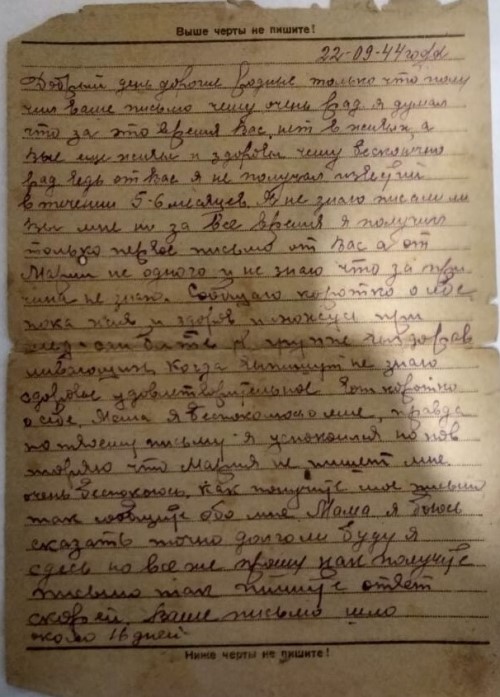 Выше черты не пишите!
22-09-44 года
Добрый день дорогие родные только что полу
чил ваше письмо чему очень рад я думал
что за это время Вас нет в живых, а
вы еще живы и здоровы чему бесконечно
рад ведь от Вас я не получал известий
в течении 5-6 месяцев. Я не знаю писали ли
Вы мне но за все время я получил
только первое письмо от Вас а от
Марии не одного и не знаю что за при
чина не знаю. Сообщаю коротко о себе,
пока жив и здоров и нахожусь при
мед-сан бате в группе выздорав
ливающих. Когда выпишут не знаю
здоровье удовлетворительное Вот коротко
о себе. Мама я беспокоюсь о
по твоему письму я успокоился но пов
торяю что Мария не пишет мне
очень беспокоюсь. Как получите мое письмо
так сообщите обо мне. Мама я боюсь
сказать точно долго ли буду я
здесь но все же прошу как получите
письмо так пишите ответ
скорей. Ваше письмо шло
около 16 дней
Ниже черты не пишите!